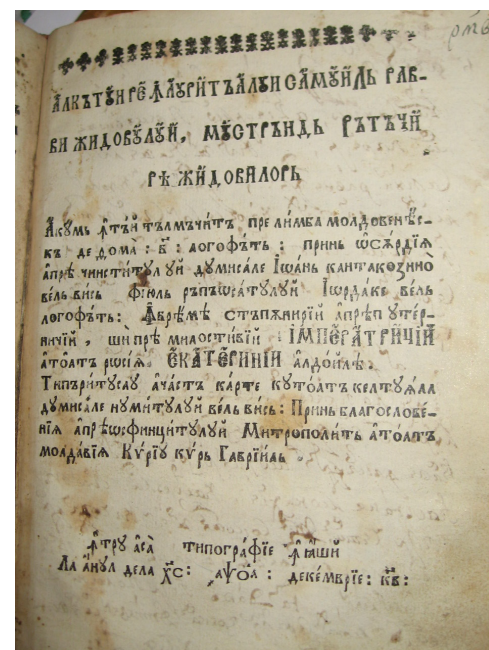 рмв
А́лкътꙋи́рѣ ꙟ҆аꙋри́тъ а́лꙋи самꙋи́ль рав-
ви жидовꙋлꙋй, мꙋстрѫ́ндь рътъчи́
рѣ жи́довилорь
А҆кꙋмь ꙟ҆тѫ́й тълмъчи́тъ пре лимба молдовенѣ́с-
къ де дома҆: б҃: логофѣтъ: принь ѡ҆сѫ́рдїѧ
а҆прѣ чинститꙋлꙋй дꙋмисале І҆ѡа́нь кантакозино̀
вель вись фїюль ръпъѡсатꙋлꙋй І҆ѡрдаке вель
логофѣтъ: А҆врѣ́мѣ стъпѫнирїй а҆прѣпꙋтѣр-
ничїй, ши прѣ милостивїй І҆МПЕРАТРИ́ЧЇЙ
а҆тоа́тъ рꙋсїѧ. Е҆КАТЕРИ́НИЇ а҆лдойлѣ.
Типъритꙋсаꙋ а҆ча́стъ ка́рте кꙋтоа́тъ келтꙋѧ́ла
дꙋмисале нꙋмитꙋлꙋй вель вись: Принь благослове́-
нїѧ а҆прѣѡсфинцитꙋлꙋй Митрополи́ть а҆тоа́тъ
молда́вїѧ Кѵ́рїꙋ кѵ́рь Гаврїи́лъ.
ꙟ҆трꙋ а҆са̀ типогра́фїе ꙟ҆ ꙗ҆́ший
Ла а҆нꙋл дела х҃с: ҂аѱо҃а: деке́мврїе: к҃в: